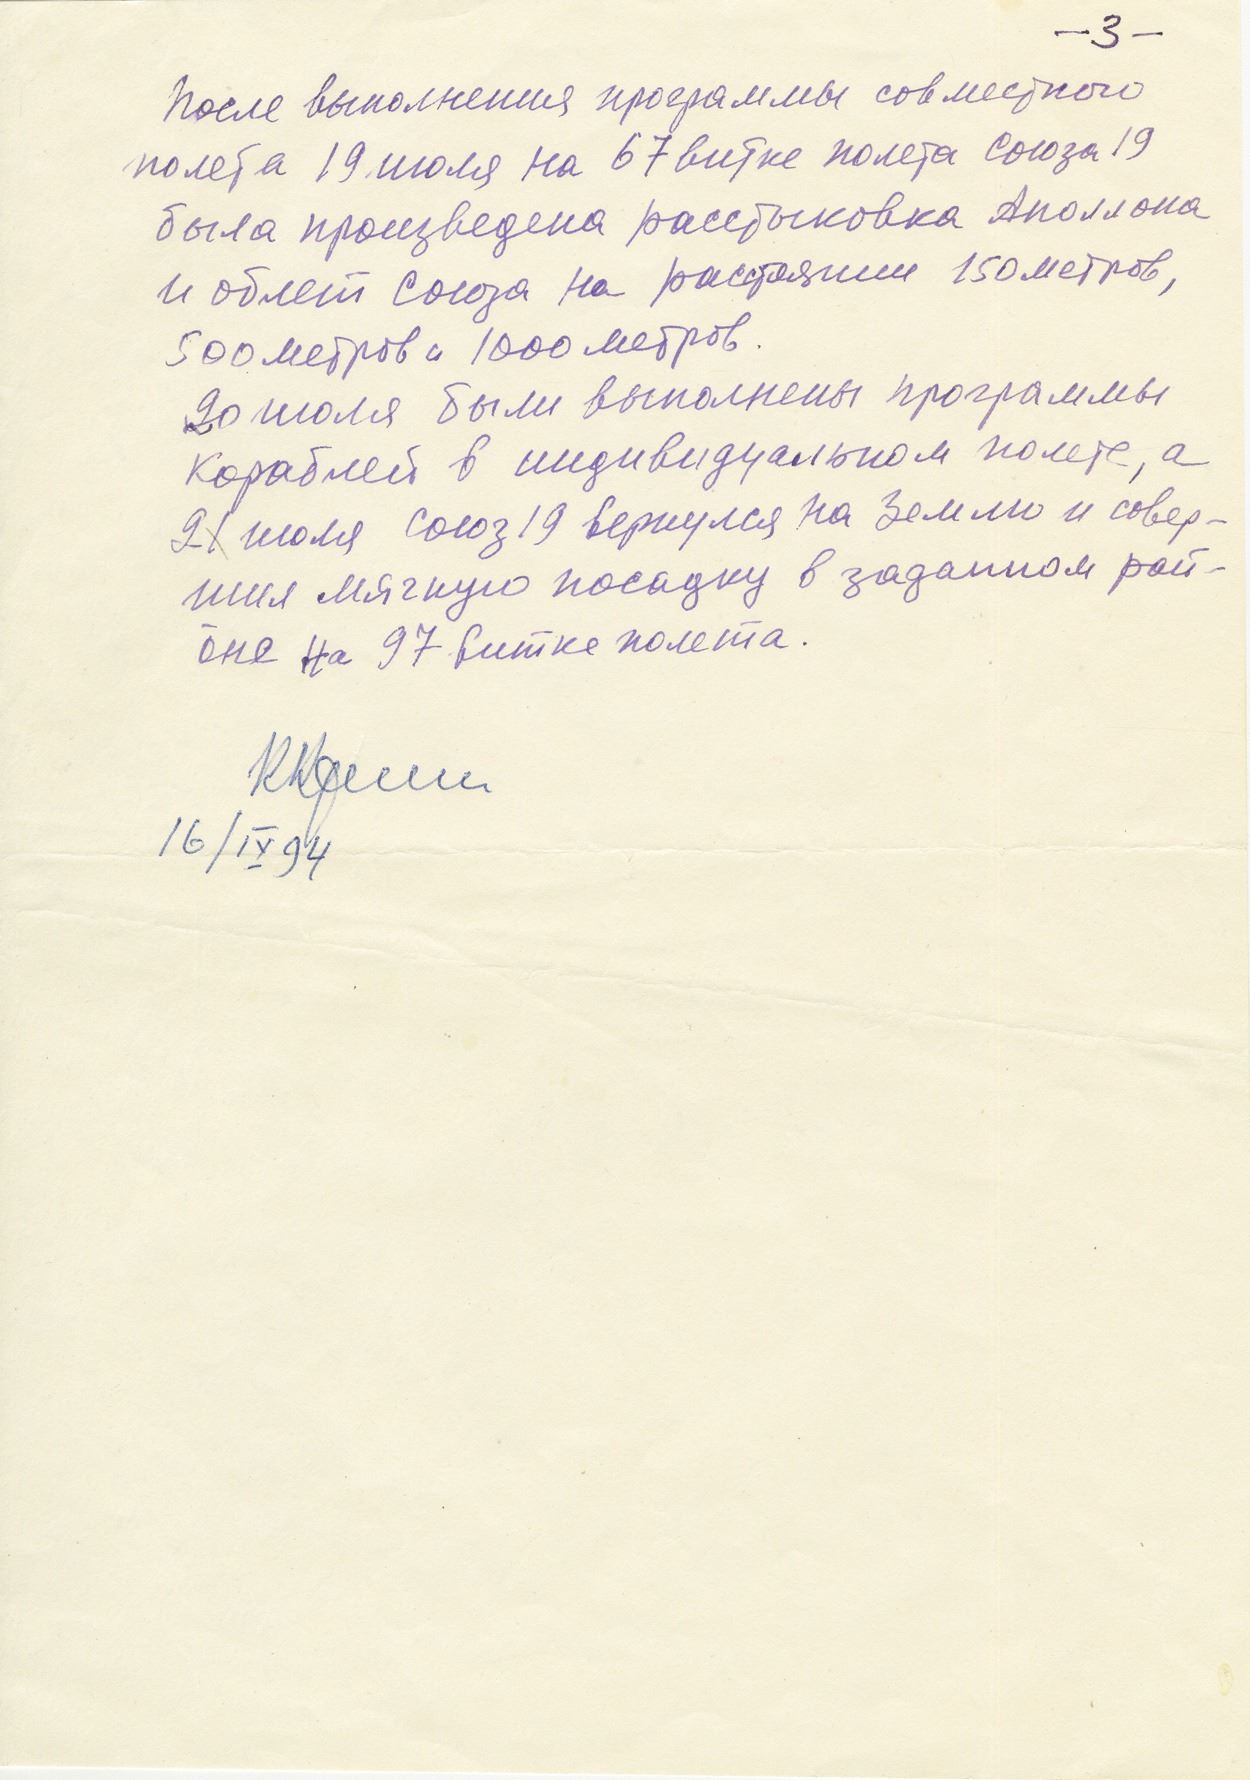 –3–
После выполнения программы совместного
полета 19 июля на 67 витке полета Союза 19
была произведена расстыковка Аполлона
и облет Союза на расстоянии 150 метров,
500 метров и 1000 метров.
20 июля были выполнены программы
кораблей в индивидуальном полете, а
21 июля Союз 19 вернулся на Землю и совер-
шил мягкую посадку в заданном рай-
оне на 97 витке полета.
16/IX 94